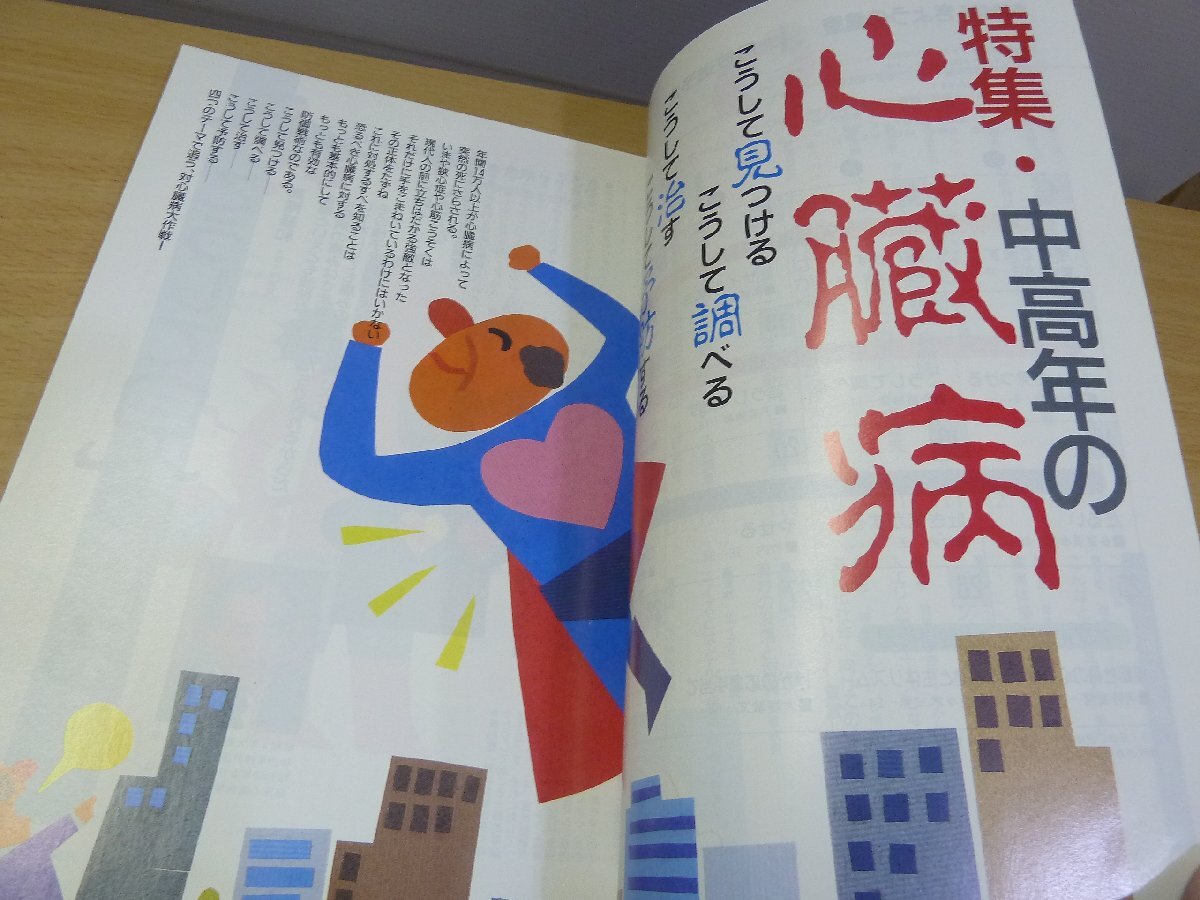 特集・中高年の
心臓病
こうして見つける
こうして調べる
こうして治す
年間14万人以上が心臓病によって
突然の死にさらされる。
いまや狭心症や心筋こうそくは
現代人の前に立ちはだかる強敵となった
それだけに手をこまねいているわけにはいかない
その正体をたずね
これに対処するすべを知ることは
恐るべき心臓病に対する
もっとも基本的にして
もっとも有効な
防御戦術なのである。
こうして見つける——
こうして調べる——
こうして治す——
こうして予防する——
四つのテーマで追う、対心臓病大作戦！